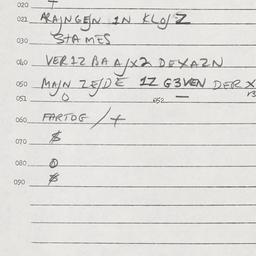 020 +
021 ARAJNGEJN 1N KLOJZ
030 3TAMES
040 VER1Z BA AJX2 DEXAZN
050 MAJN ZEJDE 1Z G3VEN DER X
051 O 052 —
060 FARTOG /+
070 $
080 O
$
090